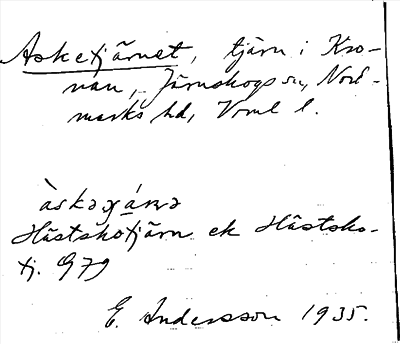 Asketjärnet, tjärn i Kro-
nan, Järnskogs sn, Nord-
marks hd, Vrml l.
àskəɟä́ɳə
Hästskotjärn ek Hästsko-
tj. G79
E. Andersson 1935.